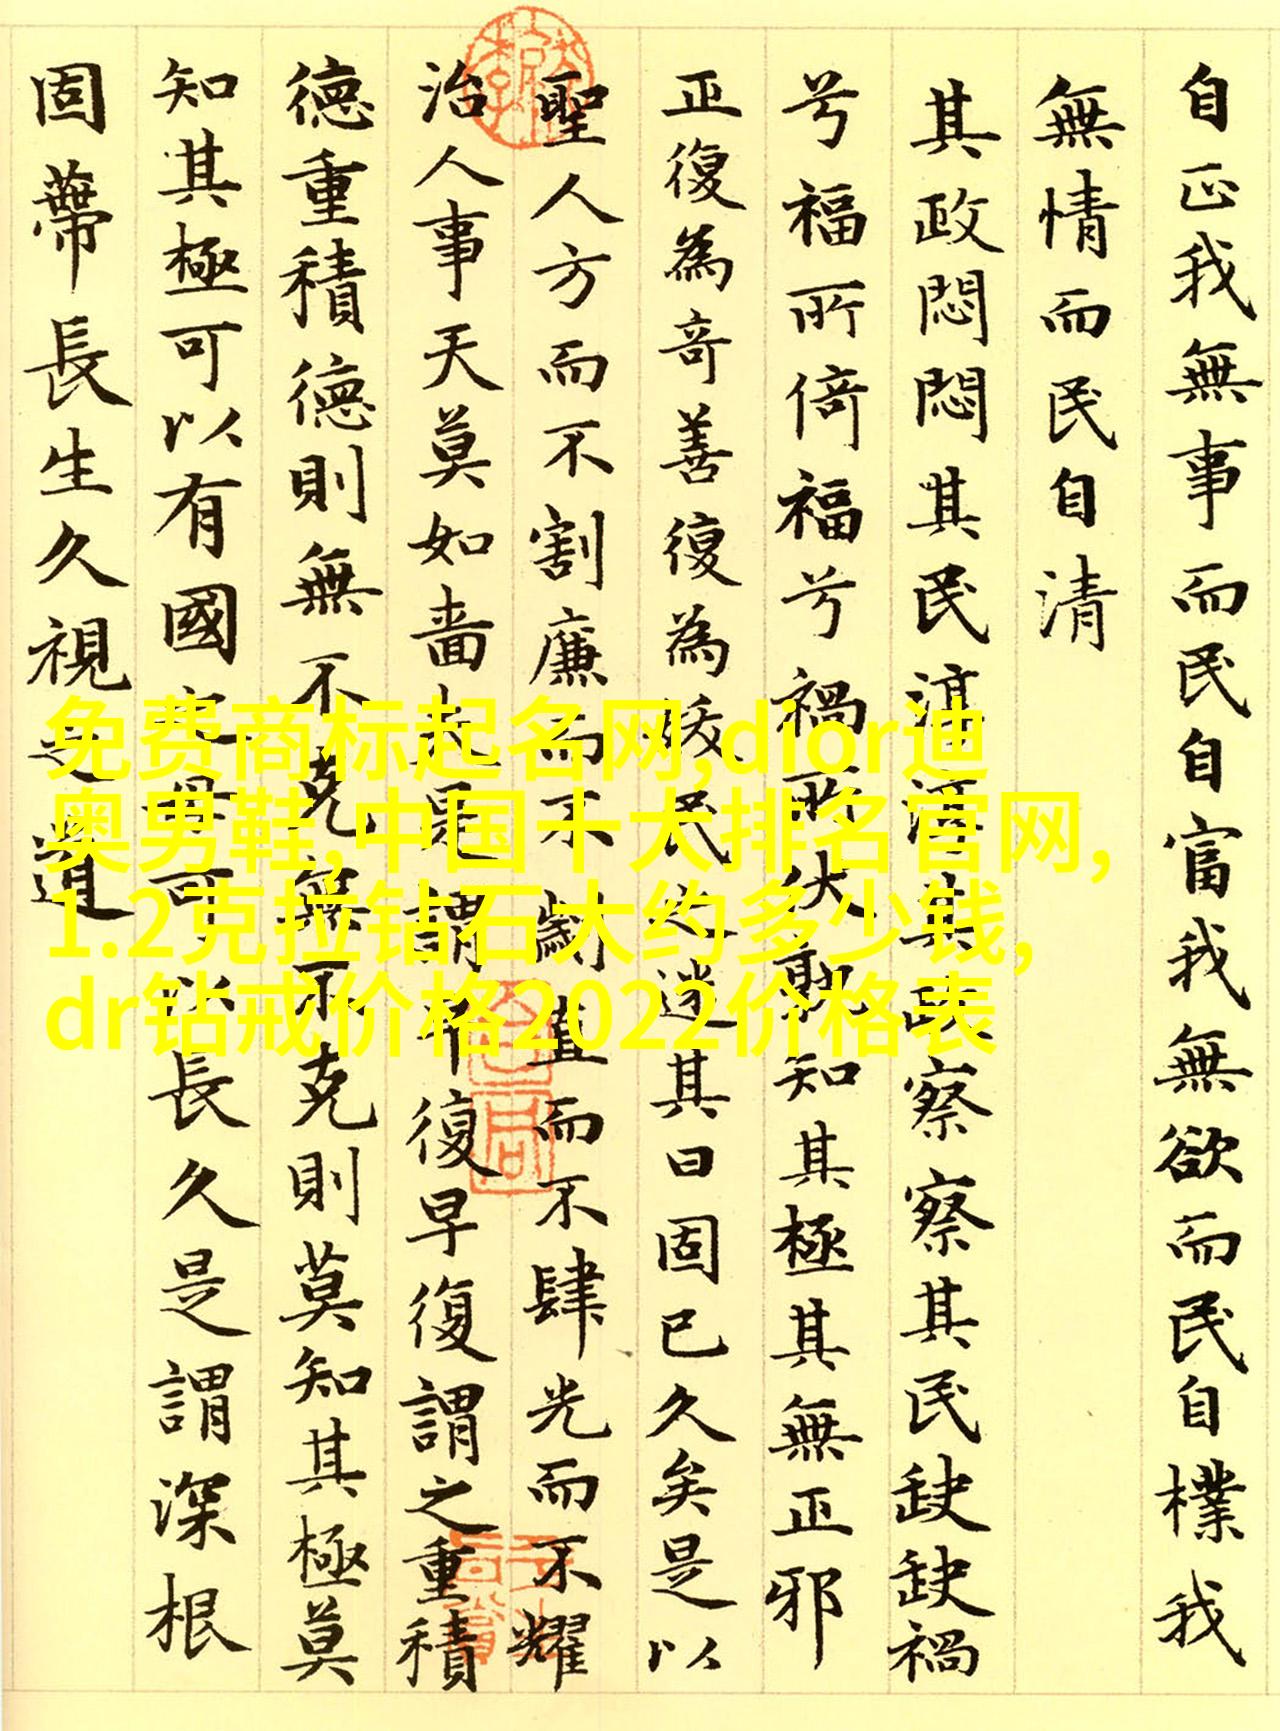 自正我無事而民自富我無欲而民自樸我
無情而民自清
其政悶悶其民淳淳其政察察其民缺缺禍
兮福所倚福兮禍所伏孰知其極其無正邪
正復為奇善復為妖民之迷其日固已久矣是以
聖人方而不割廉而不劌直而不肆光而不耀
治人事天莫如嗇夫是謂早復早復謂之重積
德重積德則無不克無不克則莫知其極莫
知其極可以有國之母可以長久是謂深根
固蔕長生久視之道
免费商标起名网,dior迪
奥男鞋,中国十大排名官网,
1.2克拉钻石大约多少钱,
dr钻戒价格2022价格表